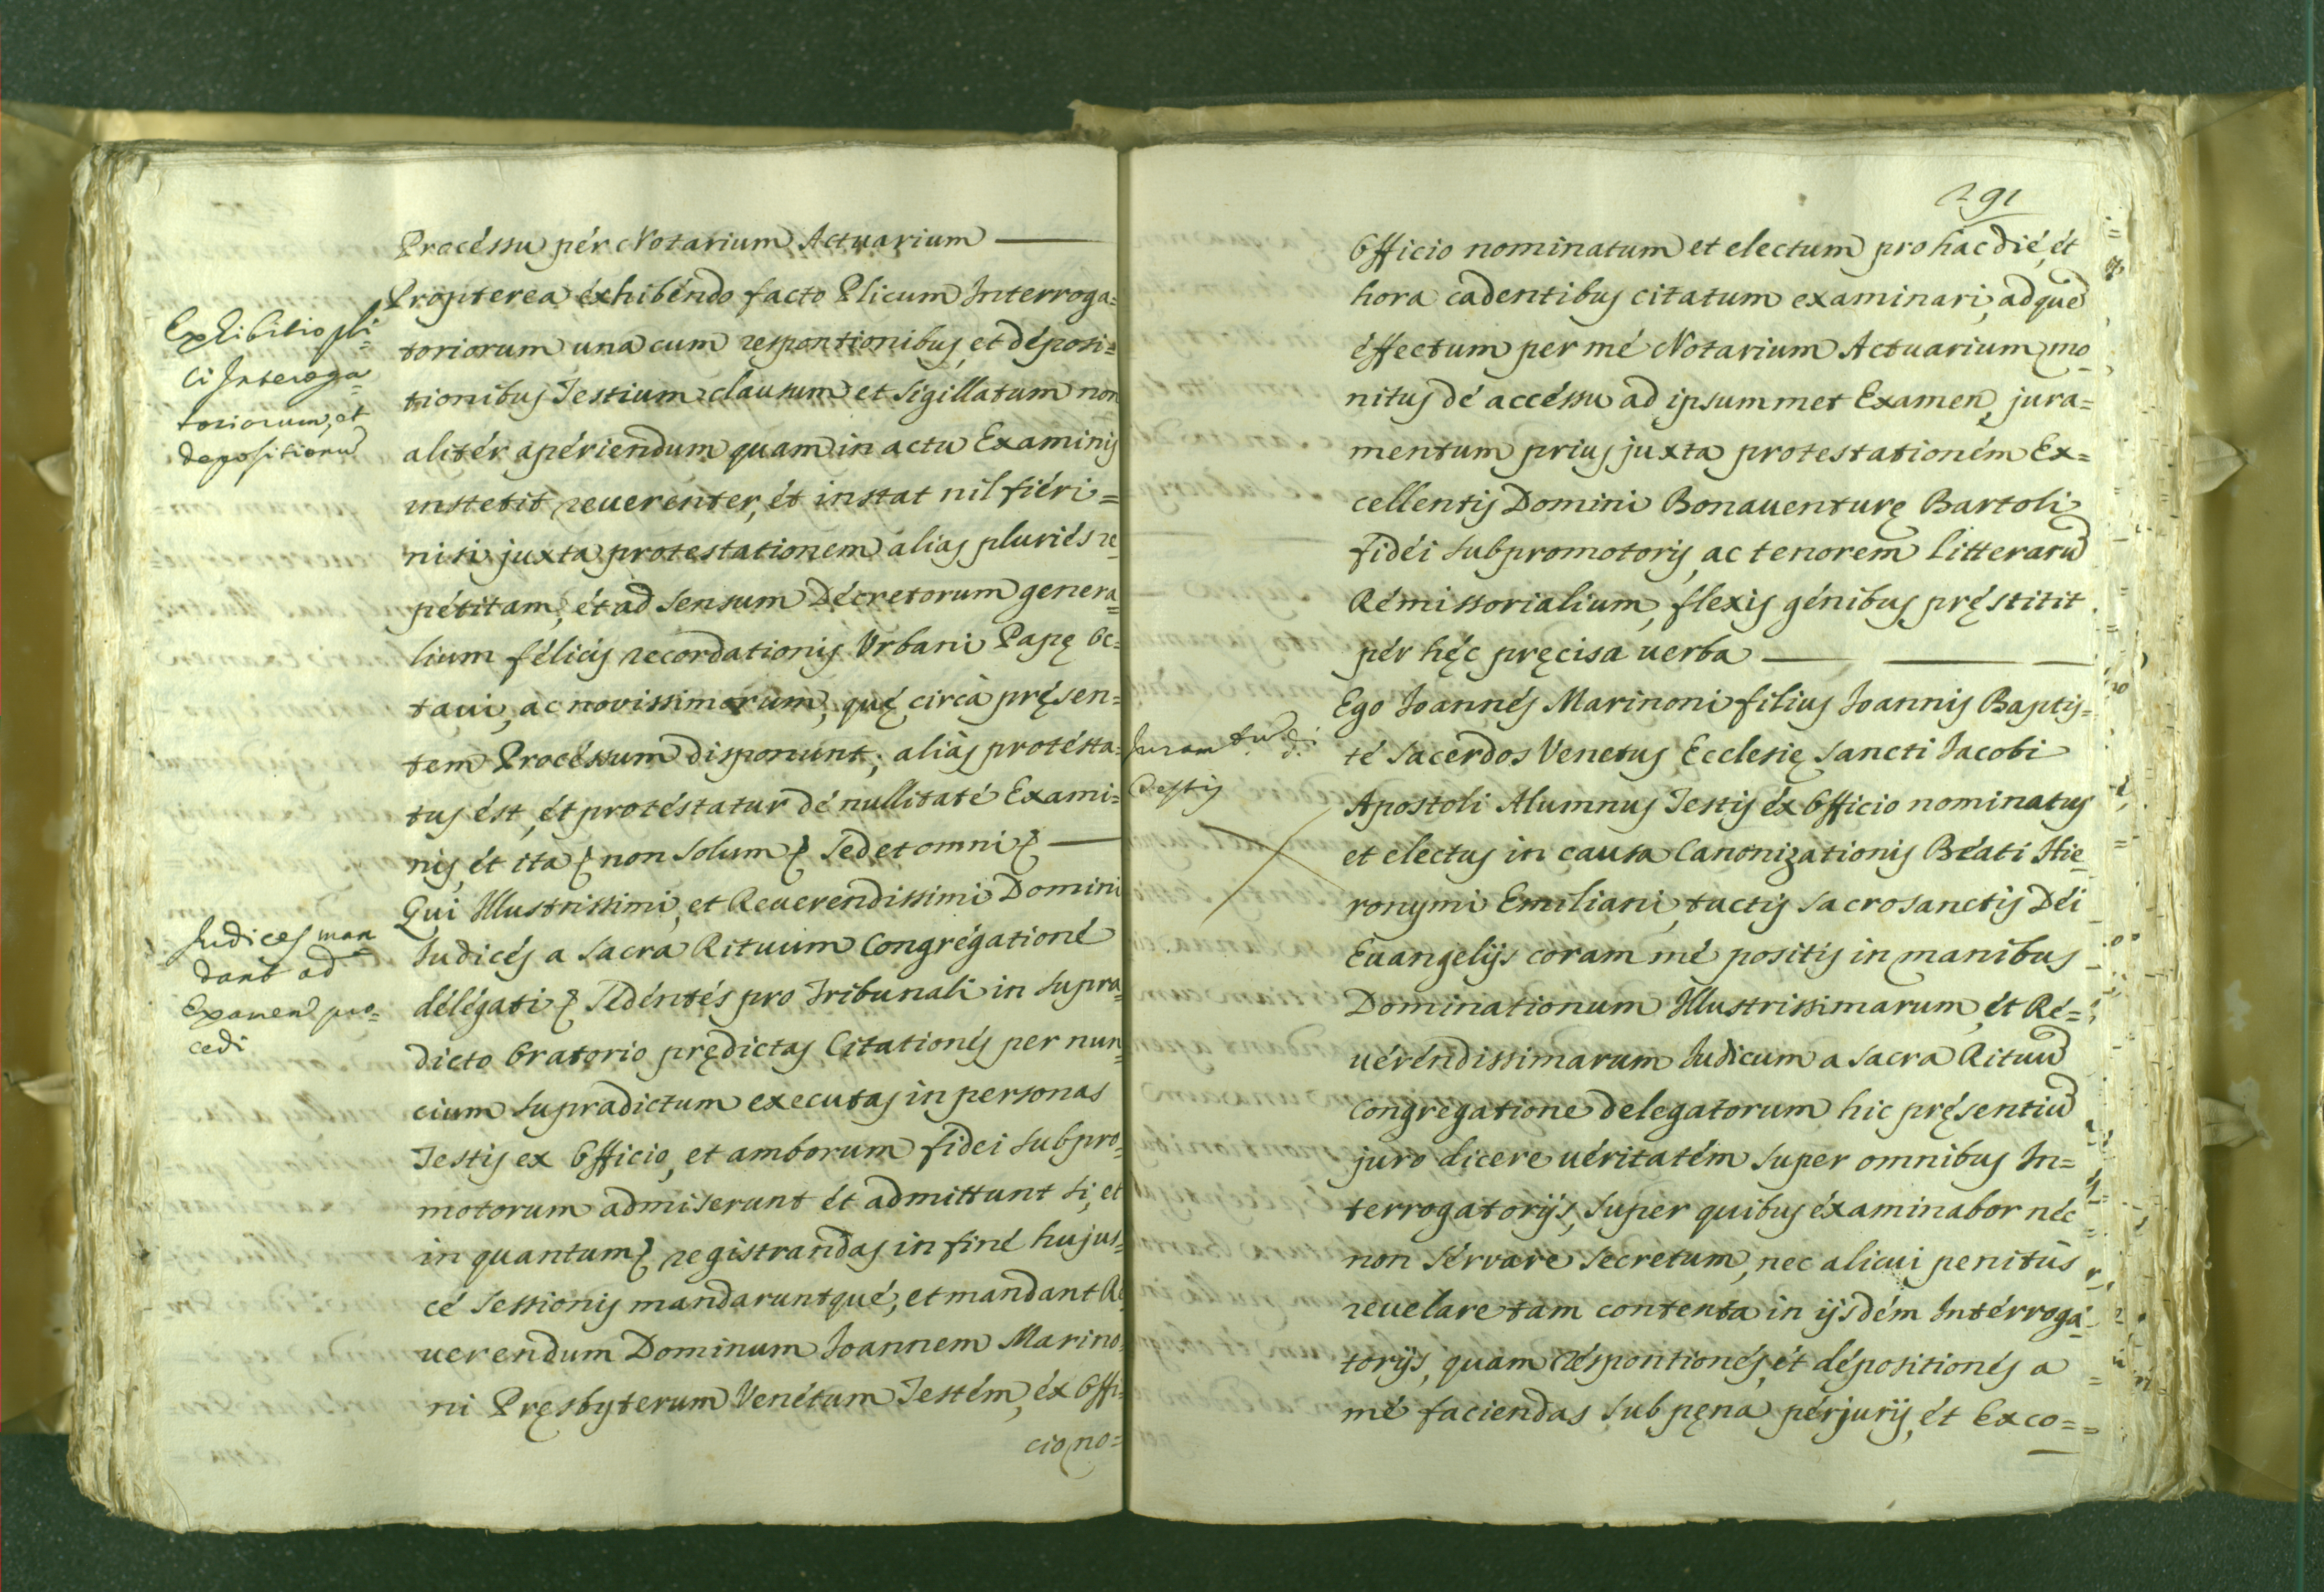 Procéssu pér Notarium Actuarium
Exhibitio pli=
ci Interoga=
toriorum, et
depositionū
Propterea éxhibéndo facto Plicum Interroga=
toriorum una cum responsionibus, et déposi=
tionibus Testium clausum et sigillatum non
alitér apériendum quam in actu Examinis
institit reuerenter, ét instat nil fiéri=
nisi juxta protestationem alias pluriés re=
pétitam, ét ad sensum Décretorum genera=
lium félicis recordationis Vrbani Papę Oc=
taui, ac novissimorum, quę circà pręsen=
tem Procéssum disponunt; aliàs protésta=
tus ést, ét protéstatur dé nullitaté Exami=
nis, ét ita & non solum & sed et omni &
Judices man
dant ad
Examen pro=
cedi
Qui Illustrissimi, et Reuerendissimi Domini
Judicés a Sacra Rituum Congrégationé
délégati & Sedéntés pro Tribunali in supra=
dicto Oratorio prędictas Citationés per nun=
cium supradictum executas in personas
Testis ex Officio, et amborum fidei subpro=
motorum admiserunt ét admittunt si, et
in quantum & registrandas in finé hujus=
cé Sessionis mandaruntqué, et mandant Re
uerendum Dominum Joannem Marino=
ni Pręsbyterum Venétum Testém, éx Offi=
cio no=
291
Officio nominatum et electum pro hac dié, ét
hora cadentibus citatum examinari, ad quē
éffectum per mé Notarium Actuarium mo=
nitus dé accéssu ad ipsummet Examen, jura=
mentum prius juxta protestationém Ex=
cellentis Domini Bonauenturę Bartoli
fidéi subpromotoris, ac tenorem litterarū
Rémissorialium, flexis génibus pręstitit
pér hęc pręcisa uerba
Juramtū d.i
Testis
Ego Joannés Marinoni filius Joannis Baptis=
té Sacerdos Venetus Ecclesię Sancti Jacobi
Apostoli Alumnus Testis éx Officio nominatus
et electus in causa Canonizationis Béati Hie=
ronymi Emiliani, tactis sacrosanctis Déi
Euangelijs coram mé positis in manibus
Dominationum Illustrissimarum, ét Ré=
uéréndissimarum Judicum a Sacra Rituū
Congregatione delegatorum hic pręsentiū
juro dicere uéritatém super omnibus In=
terrogatorijs, super quibus éxaminabor néc
non sérvare secretum, nec alicui penitùs
reuelare tam contenta in ijsdém Intérroga=
torijs, quam résponsionés, ét dépositionés a
mé faciendas sub pęna périurij, ét Exco=